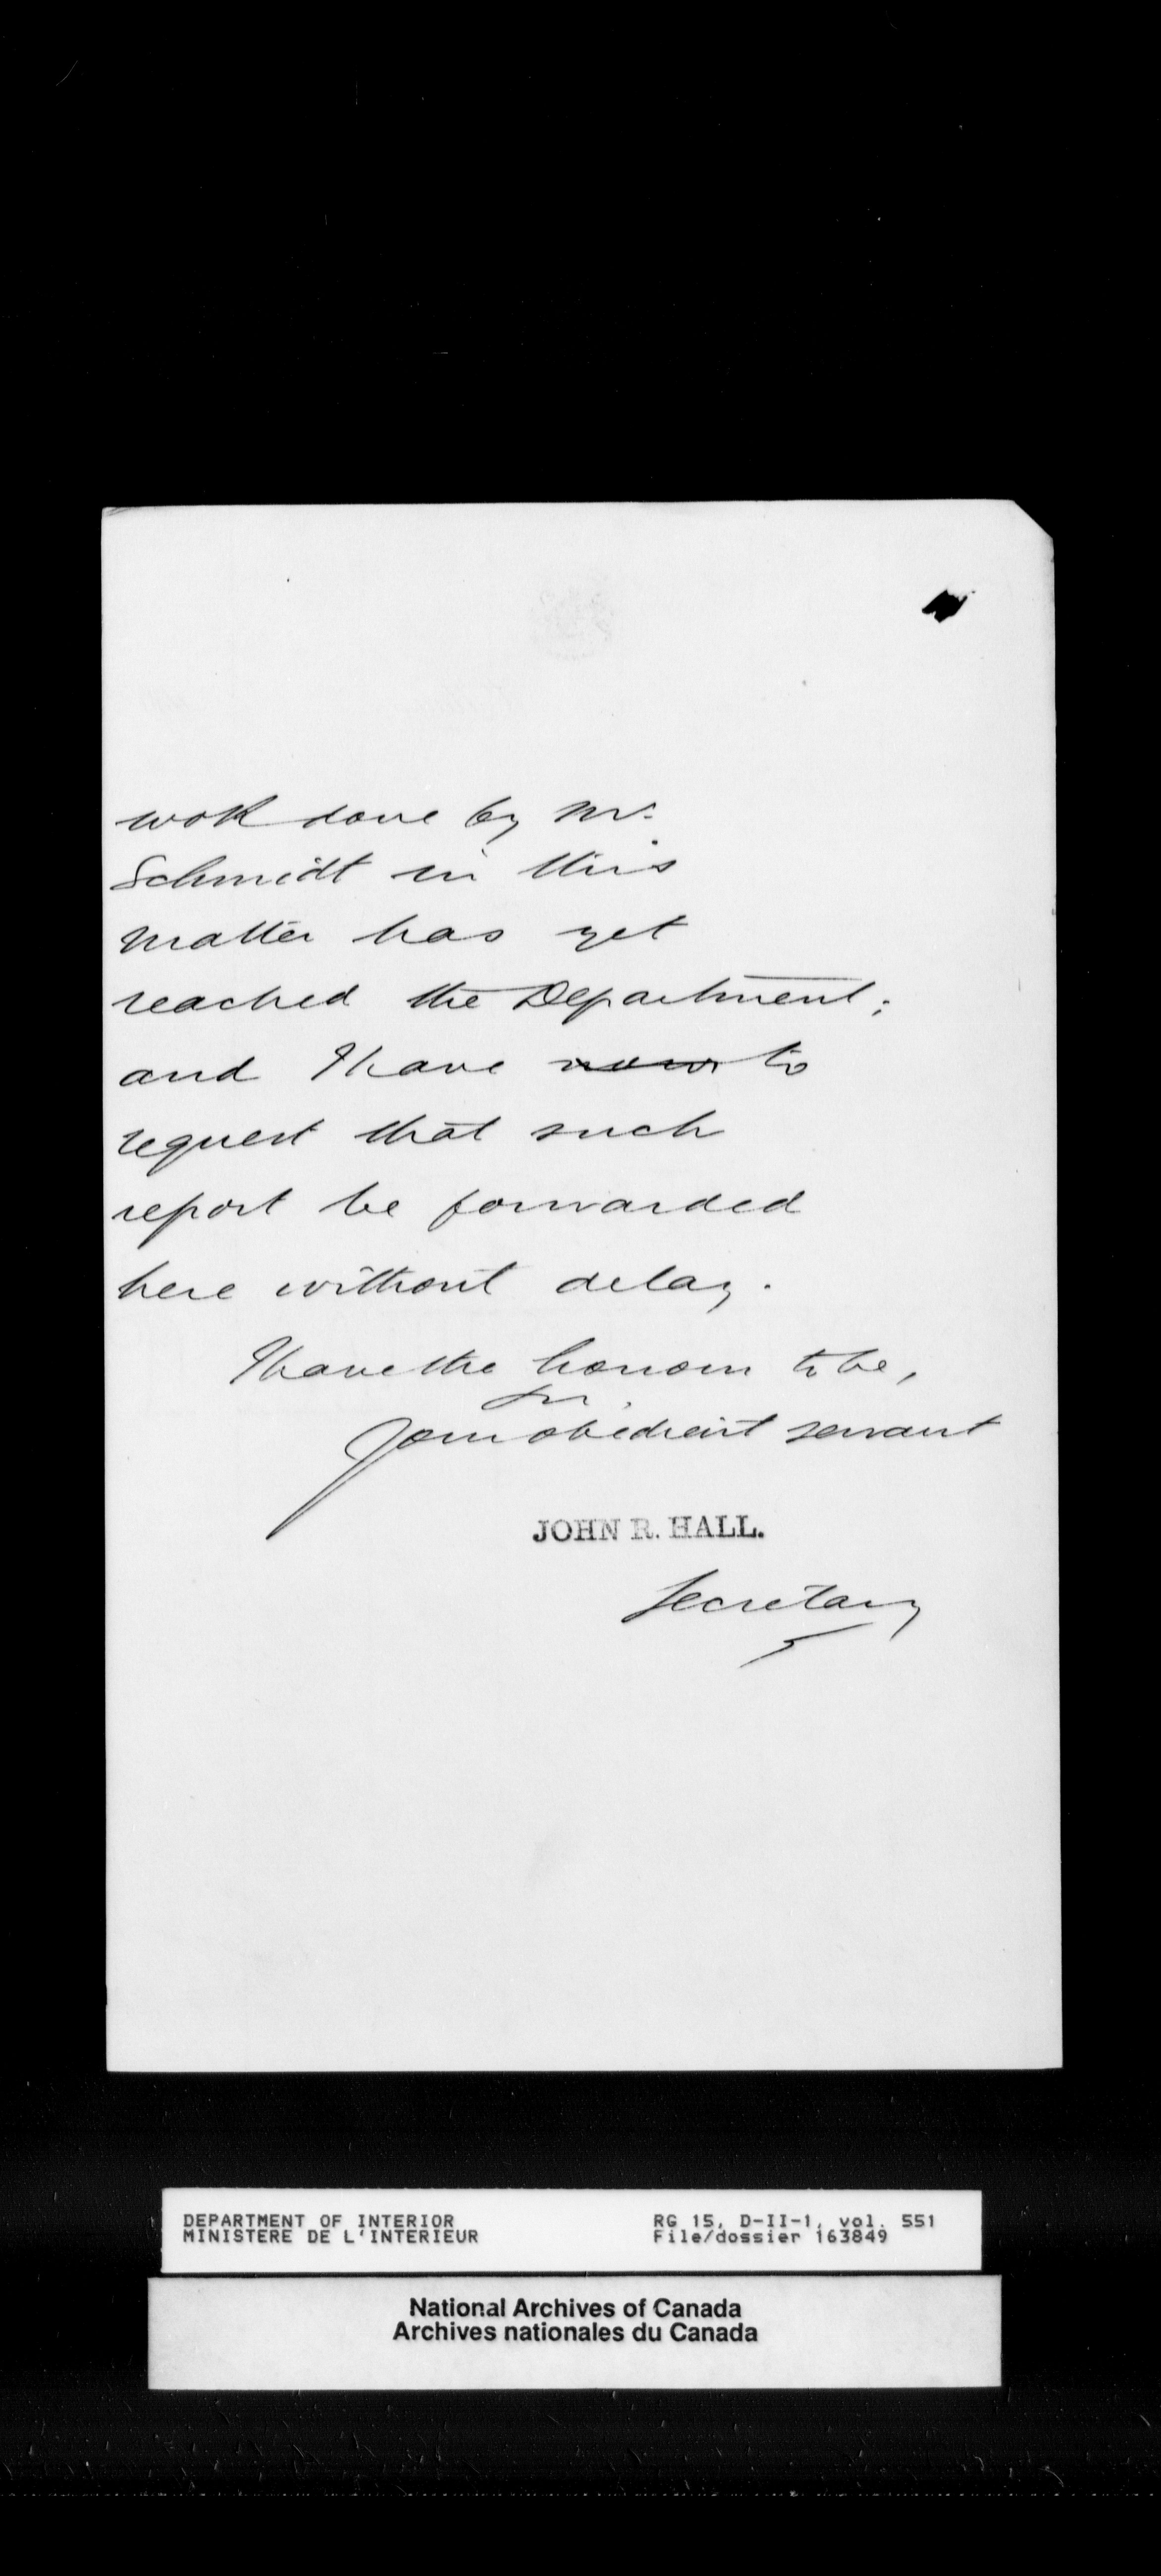 work done by Mr.
Schmidt in this
matter has yet
reached the Department;
and I have now to
request that such
report be forwarded
here without delay.
I have the honour to be,
Sir,
Your obedient servant
JOHN R. HALL.
Secretary
DEPARTMENT OF INTERIOR RG 15, D-II-1, vol. 551
MINISTERE DE L'INTERIEUR File/dossier 163849
National Archives of Canada
Archives nationales du Canada